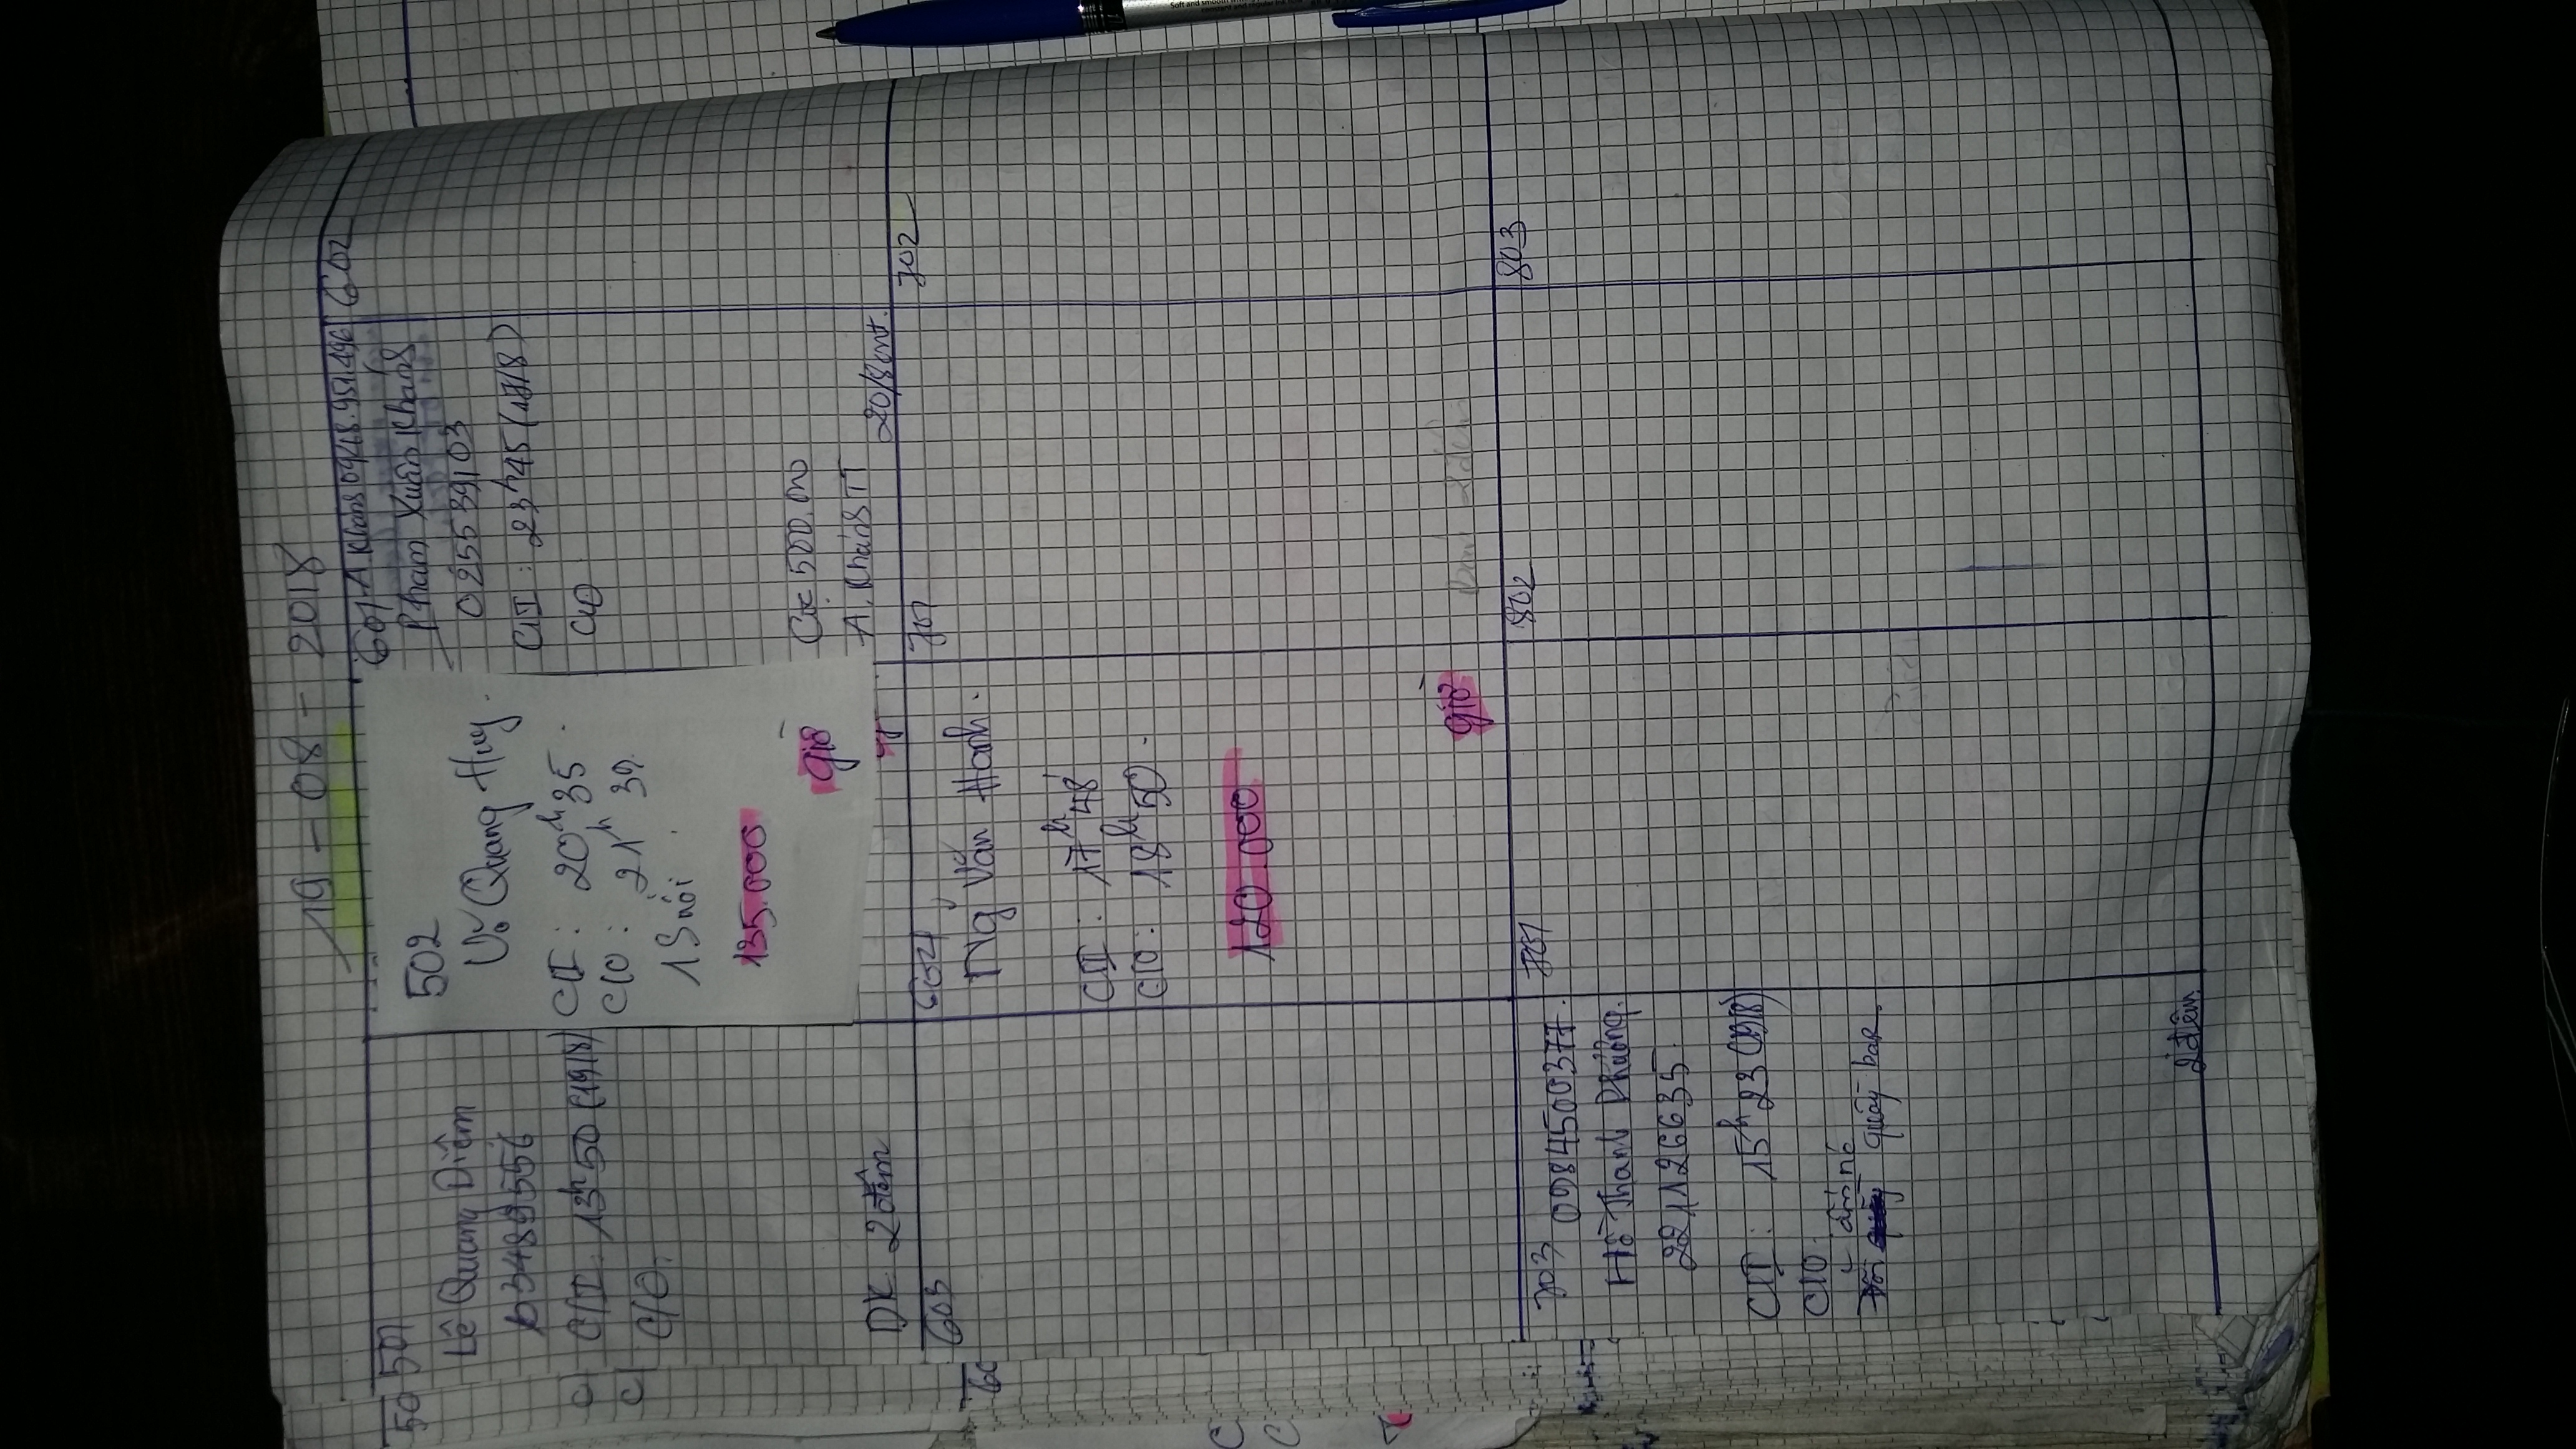 19 - 08 - 2018
50
501
Lê Quang Diệm
C/I: 13h50 (19/8)
C/O:
DK 2 đêm
502
Võ Quang Huy.
C/I: 20h35
C/O: 21h 39
1 Suối
135.000
giờ
601 A. Khang 0948.951.496
Phạm Xuân Khang
025539103
C/I: 23h45 (17/8)
C/O
Cọc 500.000
A. Khang TT
602
603
604
Ng Văn Hạnh.
C/I: 17h48
C/O: 18h50.
120.000
giờ
701
702
703 0984500377.
Hồ Thanh Phương.
221126635
C/I: 15h23 (19/8)
C/O
quầy bar.
2 đêm
801
802
803